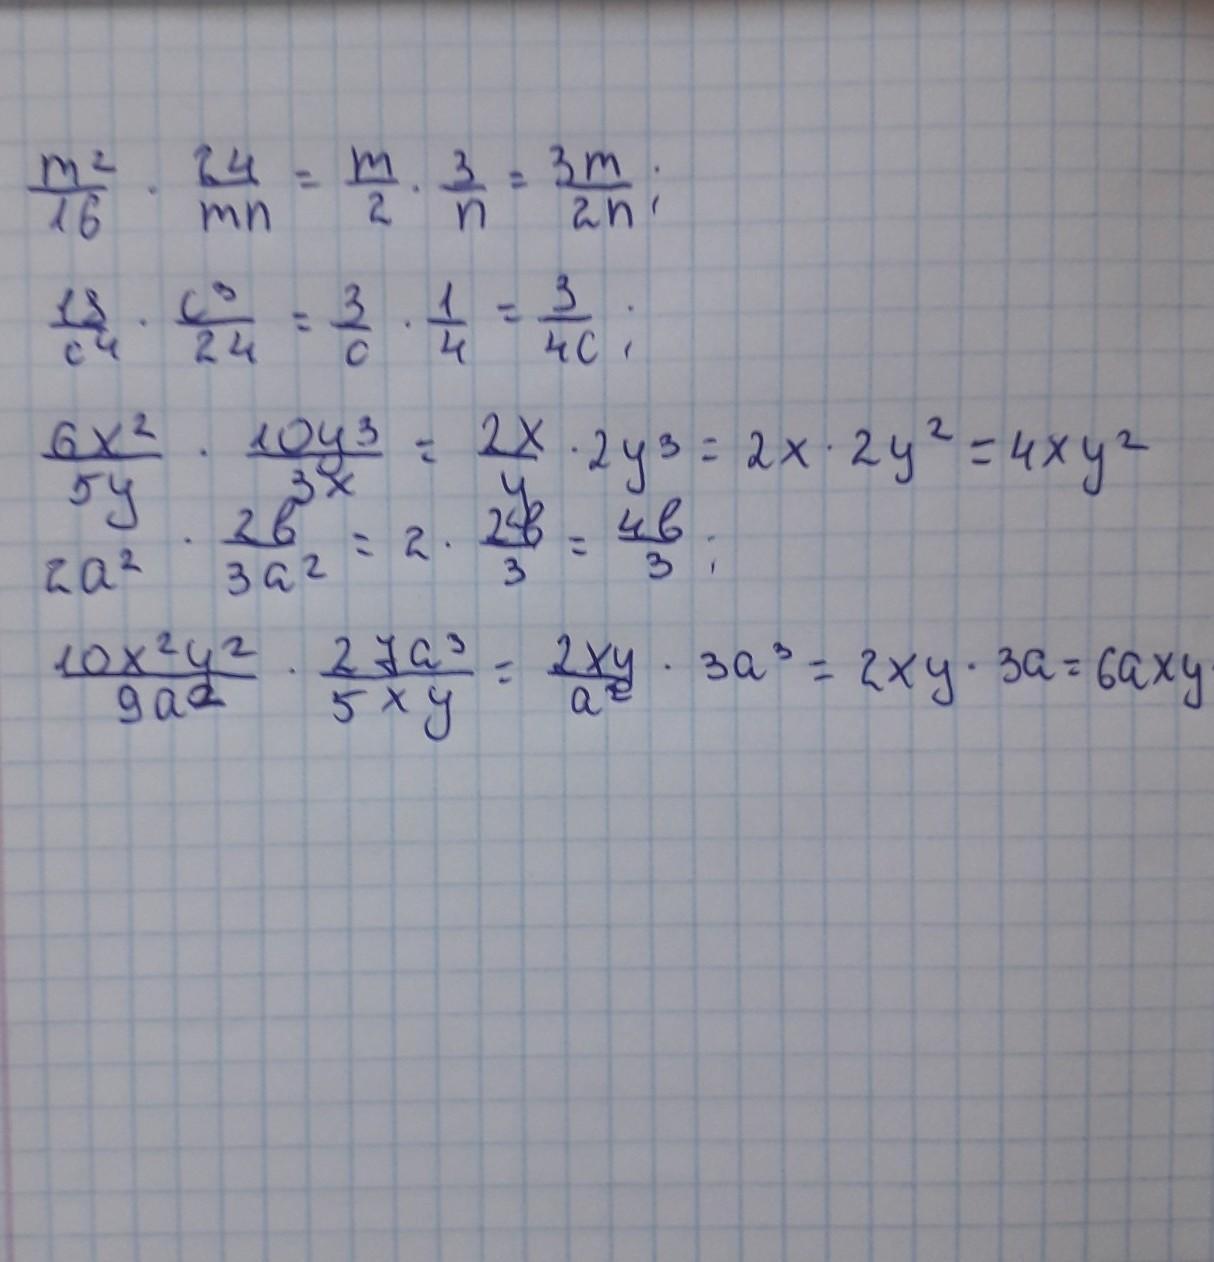 m²/16 · 24/mn = m/2 · 3/n = 3m/2n;
18/c⁴ · c³/24 = 3/c · 1/4 = 3/4c;
6x²/5y · 10y³/3x = 2x/y · 2y³ = 2x · 2y² = 4xy²
2a² · 2в/3a² = 2 · 2в/3 = 4в/3;
10x²y²/9a² · 27a³/5xy = 2xy/a² · 3a³ = 2xy · 3a = 6axy